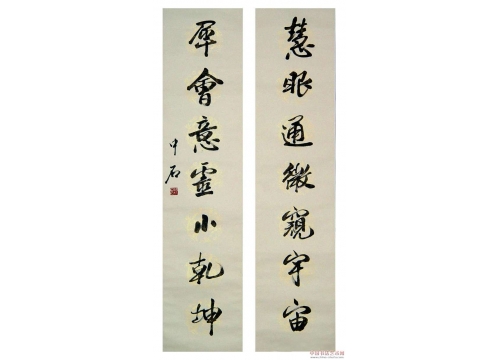 慧眼通微窺宇宙
犀會意靈小乾坤
中石